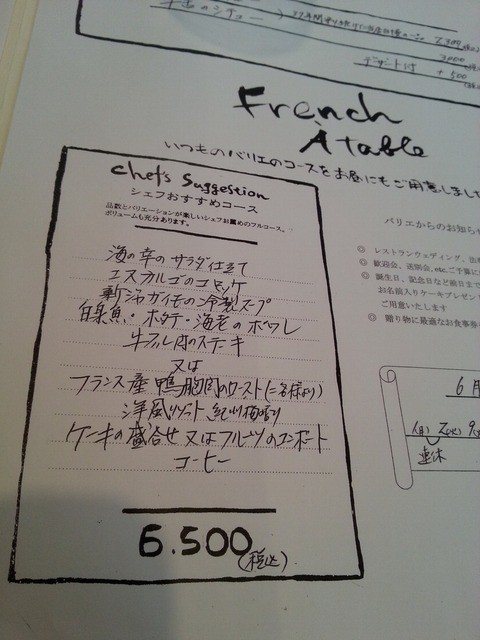 牛舌のシチュー
2,300
3,000
デザート付 +500
French
À table
いつものバリエのコースをお昼にもご用意しまし
Chef's Suggestion
シェフおすすめコース
品数とバリエーションが楽しいシェフお薦めのフルコース。
ボリュームも充分あります。
海の幸のサラダ仕立て
エスカルゴのコロッケ
新ジャガイモの冷製スプ
白身魚・ホタテ・海老のポワレ
牛フィレ肉のステーキ
又は
フランス産鴨胸肉のロースト(二名様より)
洋風リゾット 紀州梅
ケーキの盛合せ又はフルーツのコンポート
コーヒー
6.500(税込)
バリエからのお知らせ
◎ レストランウェディング、
◎ 歓迎会、送別会、etc.ご予算に
◎ 誕生日、記念日など前日まで
お名前入りケーキプレゼン
ご用意いたします
◎ 贈り物に最適なお食事券
6月
連休